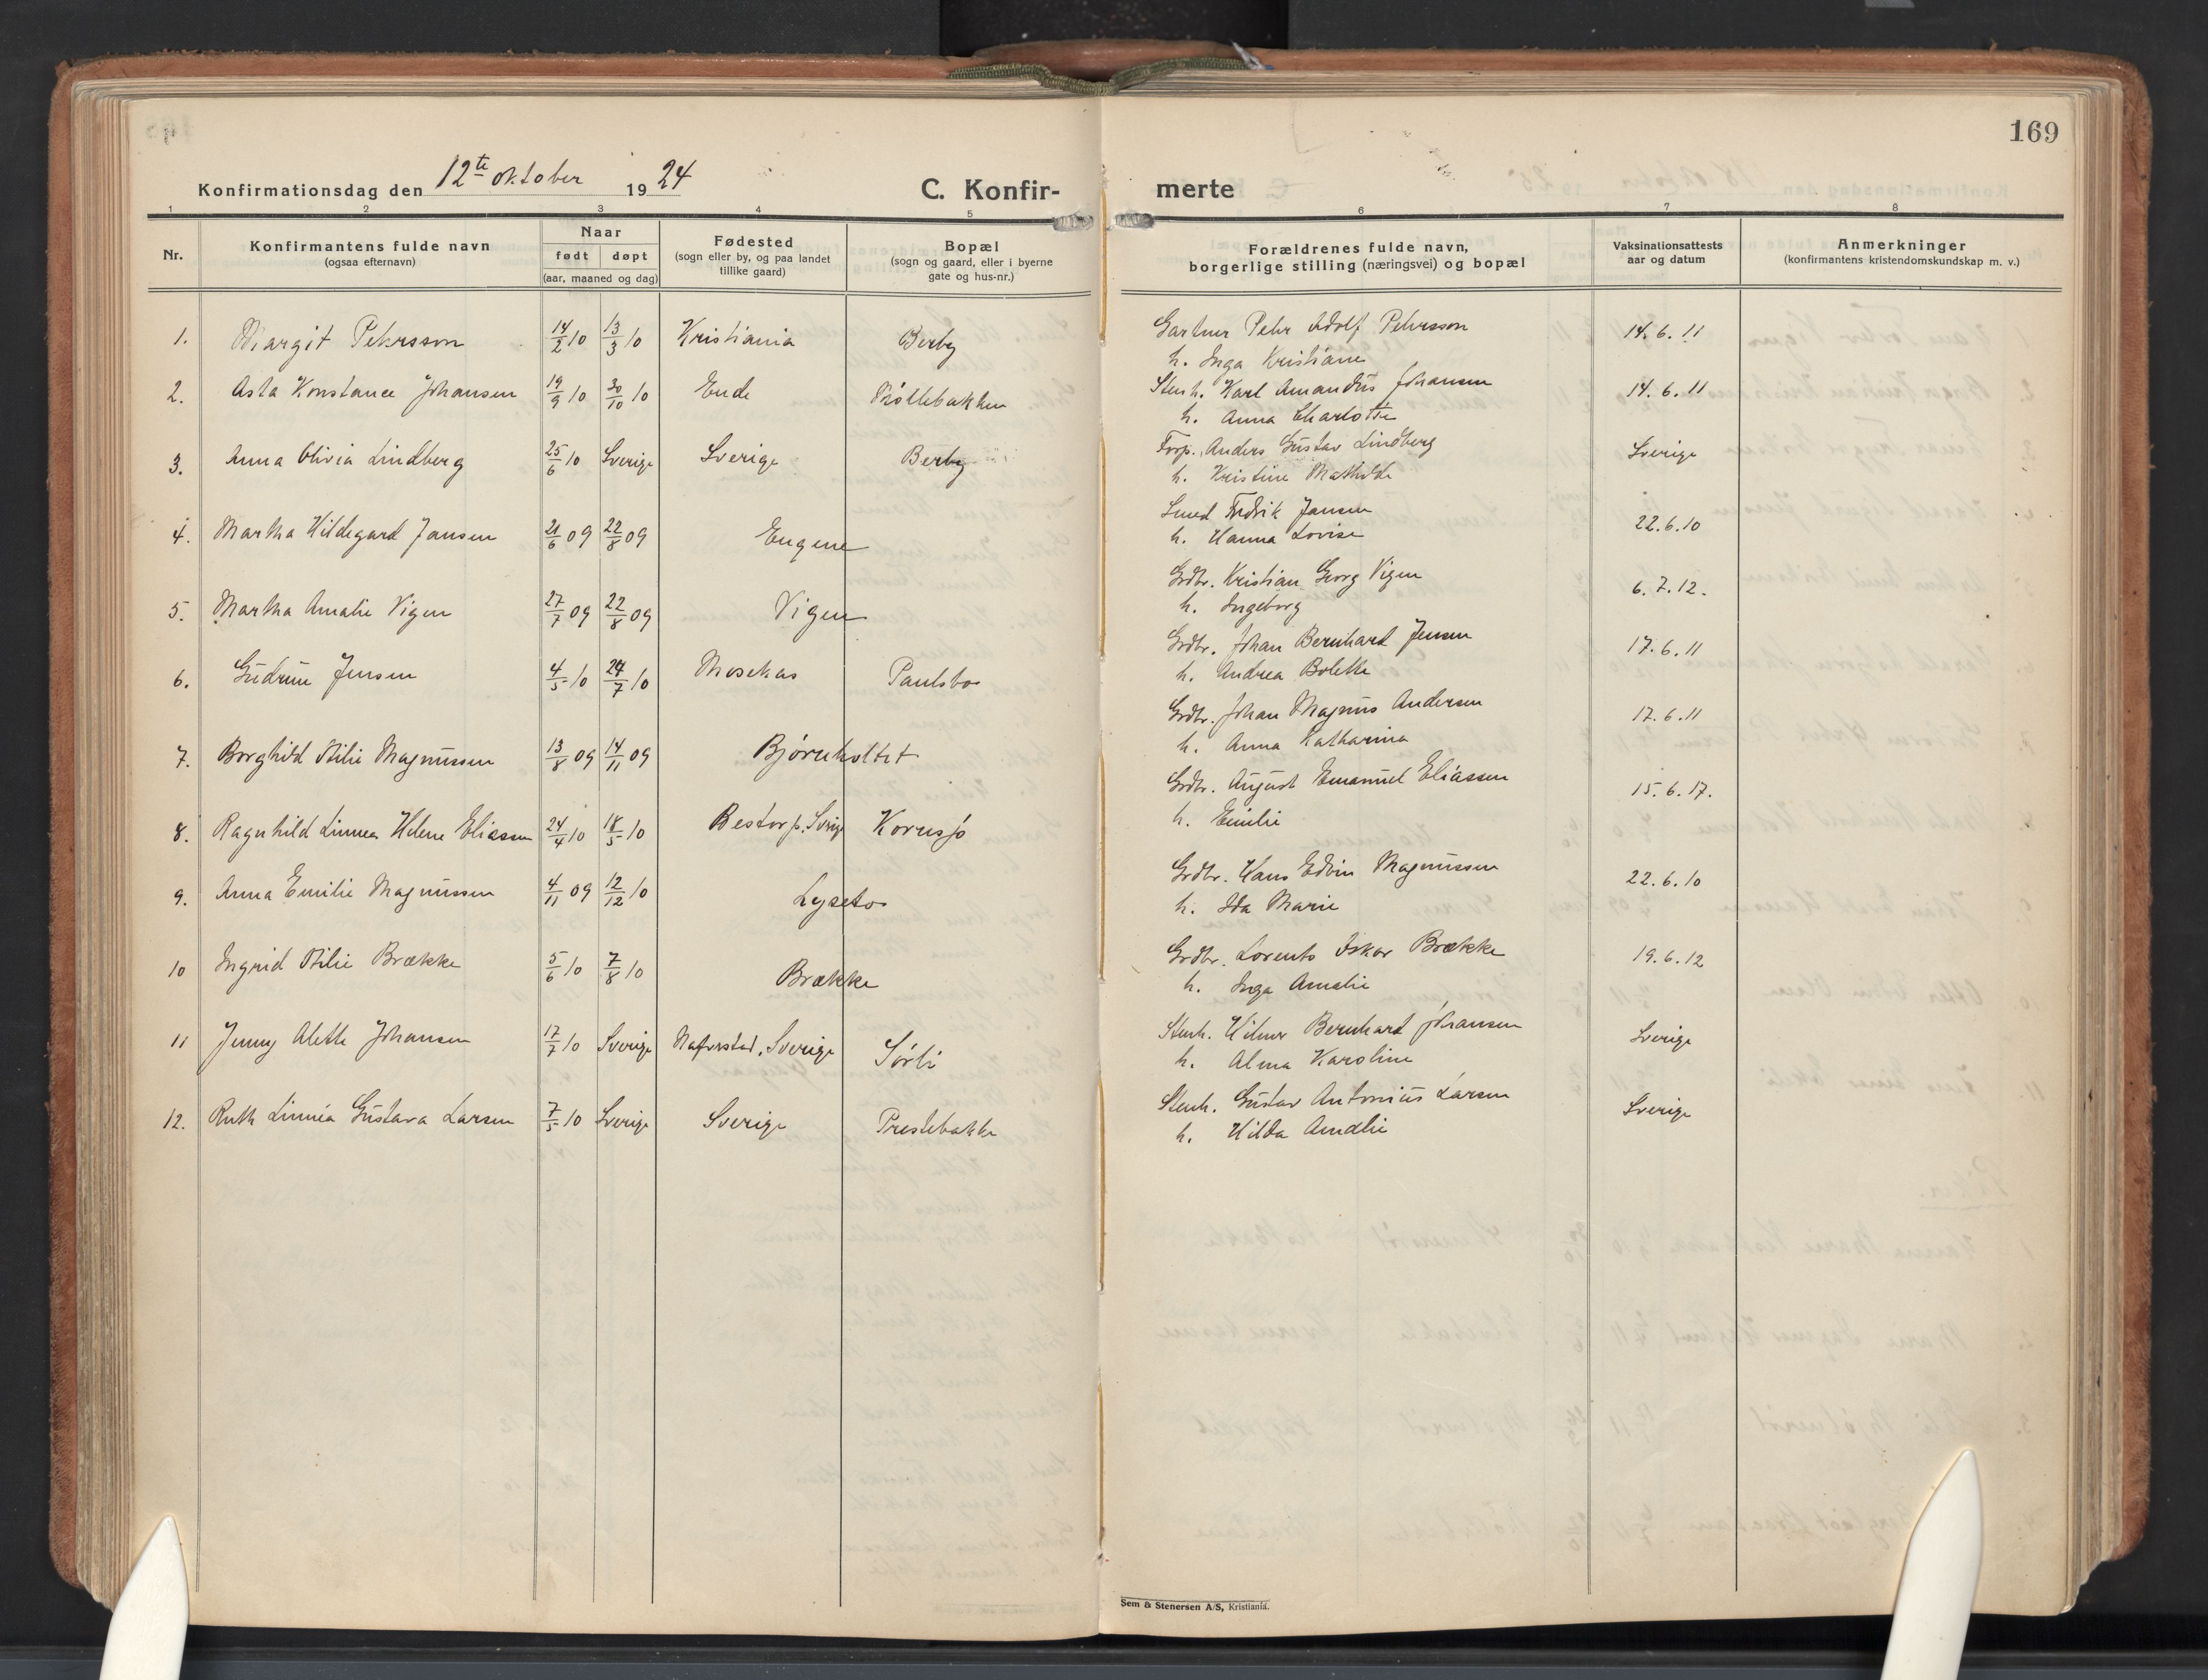 169
Konfirmationsdag den 12te oktober 1924
C. Konfir-merte
1 2 3 4 5 6 7 8
Nr.
Konfirmantens fulde navn
(ogsaa efternavn)
Naar
født døpt
(aar, maaned og dag)
Fødested
(sogn eller by, og paa landet
tillike gaard)
Bopæl
(sogn og gaard, eller i byerne
gate og hus-nr.)
Forældrenes fulde navn,
borgerlige stilling (næringsvei) og bopæl
Vaksinationsattests
aar og datum
Anmerkninger
(konfirmantens kristendomskundskap m. v.)
1. Margit Pehrsson 14/2 10 13/3 10 Kristiania Berby Gartner Pehr Adolf Pehrsson 14.6.11
h. Inga Kristiane
2. Asta Konstance Johansen 19/9 10 30/10 10 Ende Stenh. Karl Amandus Johansen 14.6.11
h. Anna Charlotte
3. Anna Olivia Lindberg 25/6 10 Sverige Sverige Berby Forp. Anders Gustav Lindberg Sverige
h. Kristine Mathilde
4. Martha Hildegard Jansen 21/6 09 22/8 09 Engene Smed Fredrik Jansen 22.6.10
h. Hanna Lovise
5. Martha Amalie Vigen 27/7 09 22/8 09 Vigen Grdbr. Kristian Georg Vigen 6.7.12.
h. Ingeborg
6. Gudrun Jensen 4/5 10 24/7 10 Mosekas Paulsbo Grdbr. Johan Bernhard Jensen 17.6.11
h. Andrea Bolette
7. Borghild Otilie Magnussen 13/8 09 14/11 09 Bjørnholtet Grdbr. Johan Magnus Andersen 17.6.11
h. Anna Katharina
8. Ragnhild Linnea Helene Eliassen 24/4 10 18/5 10 Bestorp. Sverige Kornsjø Grdbr. August Emanuel Eliassen 15.6.17.
h. Emilie
9. Anna Emilie Magnussen 4/11 09 12/12 10 Lysetos Grdbr. Hans Edvin Magnussen 22.6.10
h. Ida Marie
10 Ingrid Otilie Brække 5/6 10 7/8 10 Brække Grdbr. Lorents Oskar Brække 19.6.12
h. Inga Amalie
11 Jenny Alette Johansen 17/7 10 Sverige Naverstad, Sverige Sørli Stenh. Hilmer Bernhard Johansen Sverige
h. Alma Karoline
12. Ruth Linnéa Gustava Larsen 7/5 10 Sverige Sverige Prestebakke Stenh. Gustav Antonius Larsen Sverige
h. Hilda Amalie
Sem & Stenersen A/S, Kristiania.